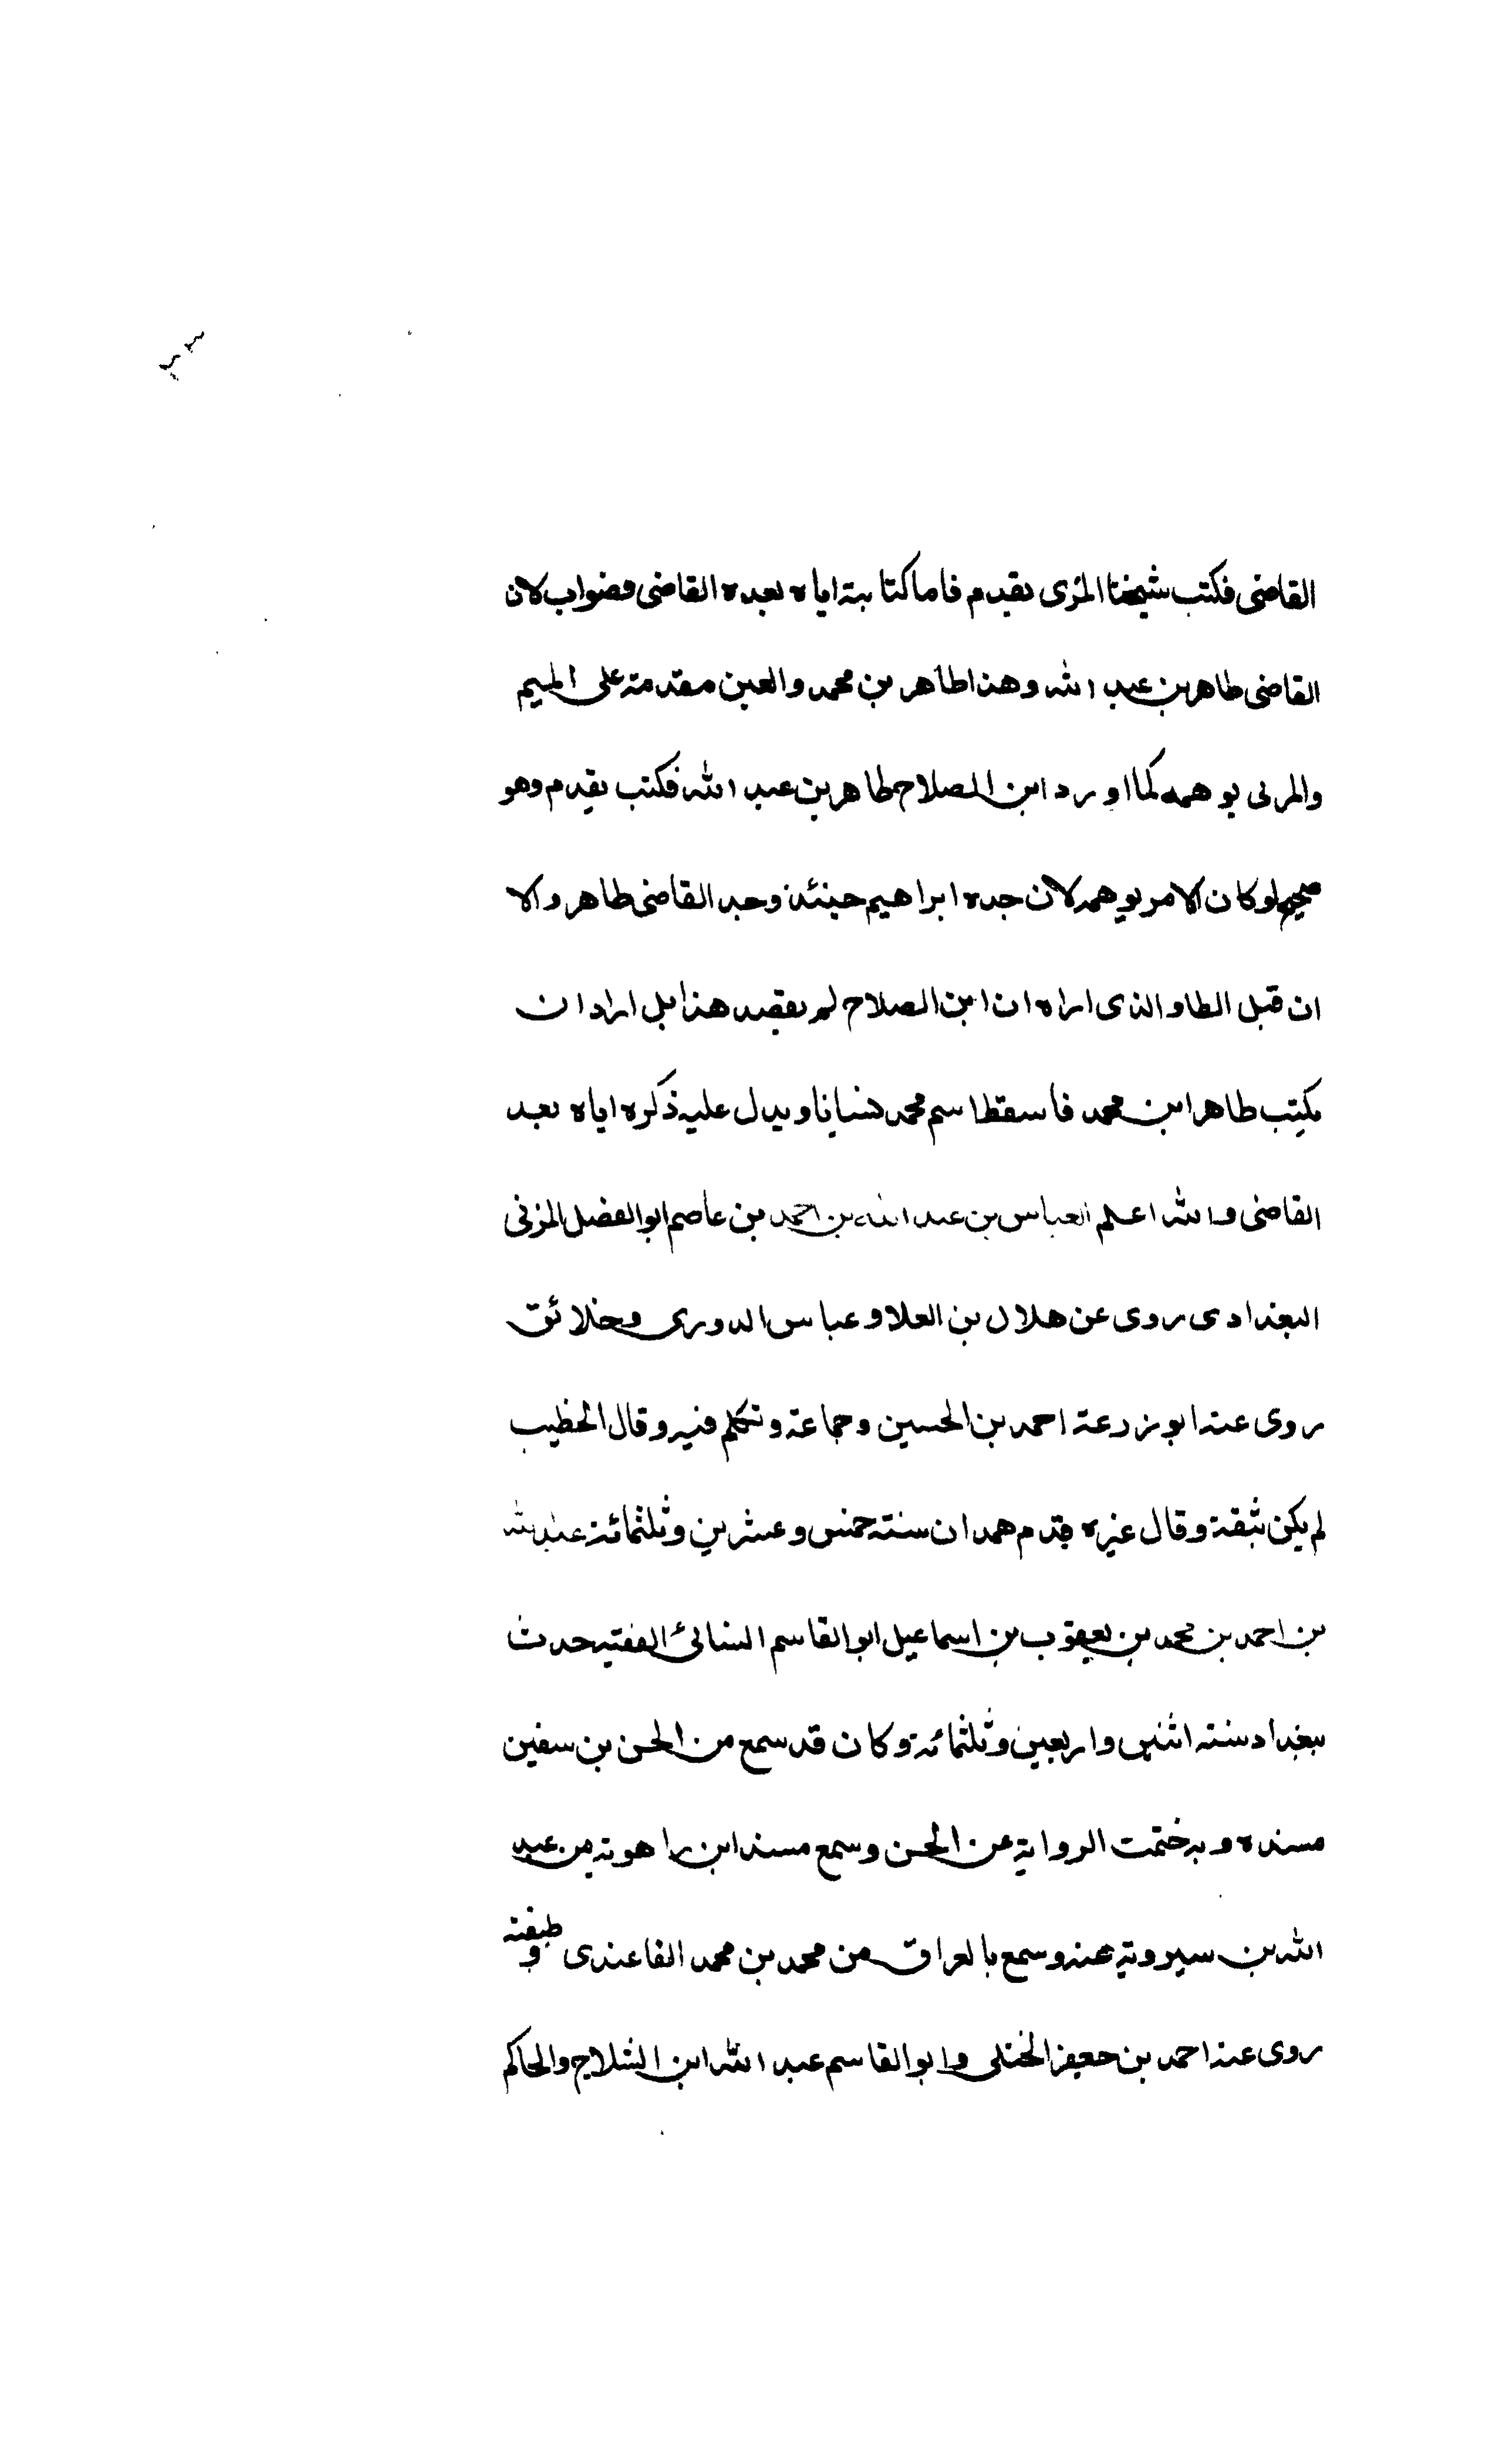 القاضى فكتب شيخنا المزى يقدم فاما كتابته اياه بعده القاضى فضواب لان
القاضى طاهر بن عبد الله وهذا طاهر بن محمد والعين مقدمة على الميم
والمزنى يوهمه كما اورد ابن الصلاح طاهر بن عبد الله فكتب يقدم وهو
صحيح لو كان الامر يوهمه لان جده ابراهيم حينئذ وجد القاضى طاهر والا
ان قبل الطاو الذى اراه ان ابن الصلاح لم يقصد هذا بل اراد ان
يكتب طاهر ابن محمد فاسقط اسم محمد نسيانا ويدل عليه ذكره اياه بعد
القاضى والله اعلم العباس بن عبد الله بن احمد بن عاصم ابو الفضل المزنى
البغدادى روى عن هلال بن العلا وعباس الدورى وخلائق
روى عنه ابو زرعة احمد بن الحسين وجماعة وتكلم فيه وقال الخطيب
لم يكن ثقة وقال غيره قدم همدان سنة خمس وعشرين وثلثمائة عبد الله
بن احمد بن محمد بن يعقوب بن اسماعيل ابو القاسم النسائئ الفقيه حدث
ببغداد سنة اثنين واربعين وثلثمائة وكان قد سمع من الحسن بن سفين
مسنده وبه ختمت الرواية عن الحسن وسمع مسند ابن راهوية من عبد
الله بن سيروية عنه وسمع بالعراق من محمد بن محمد الفاعندى وطبقته
روى عنه احمد بن جعفر الختلى وابو القاسم عبد الله ابن الثلاج والحاكم